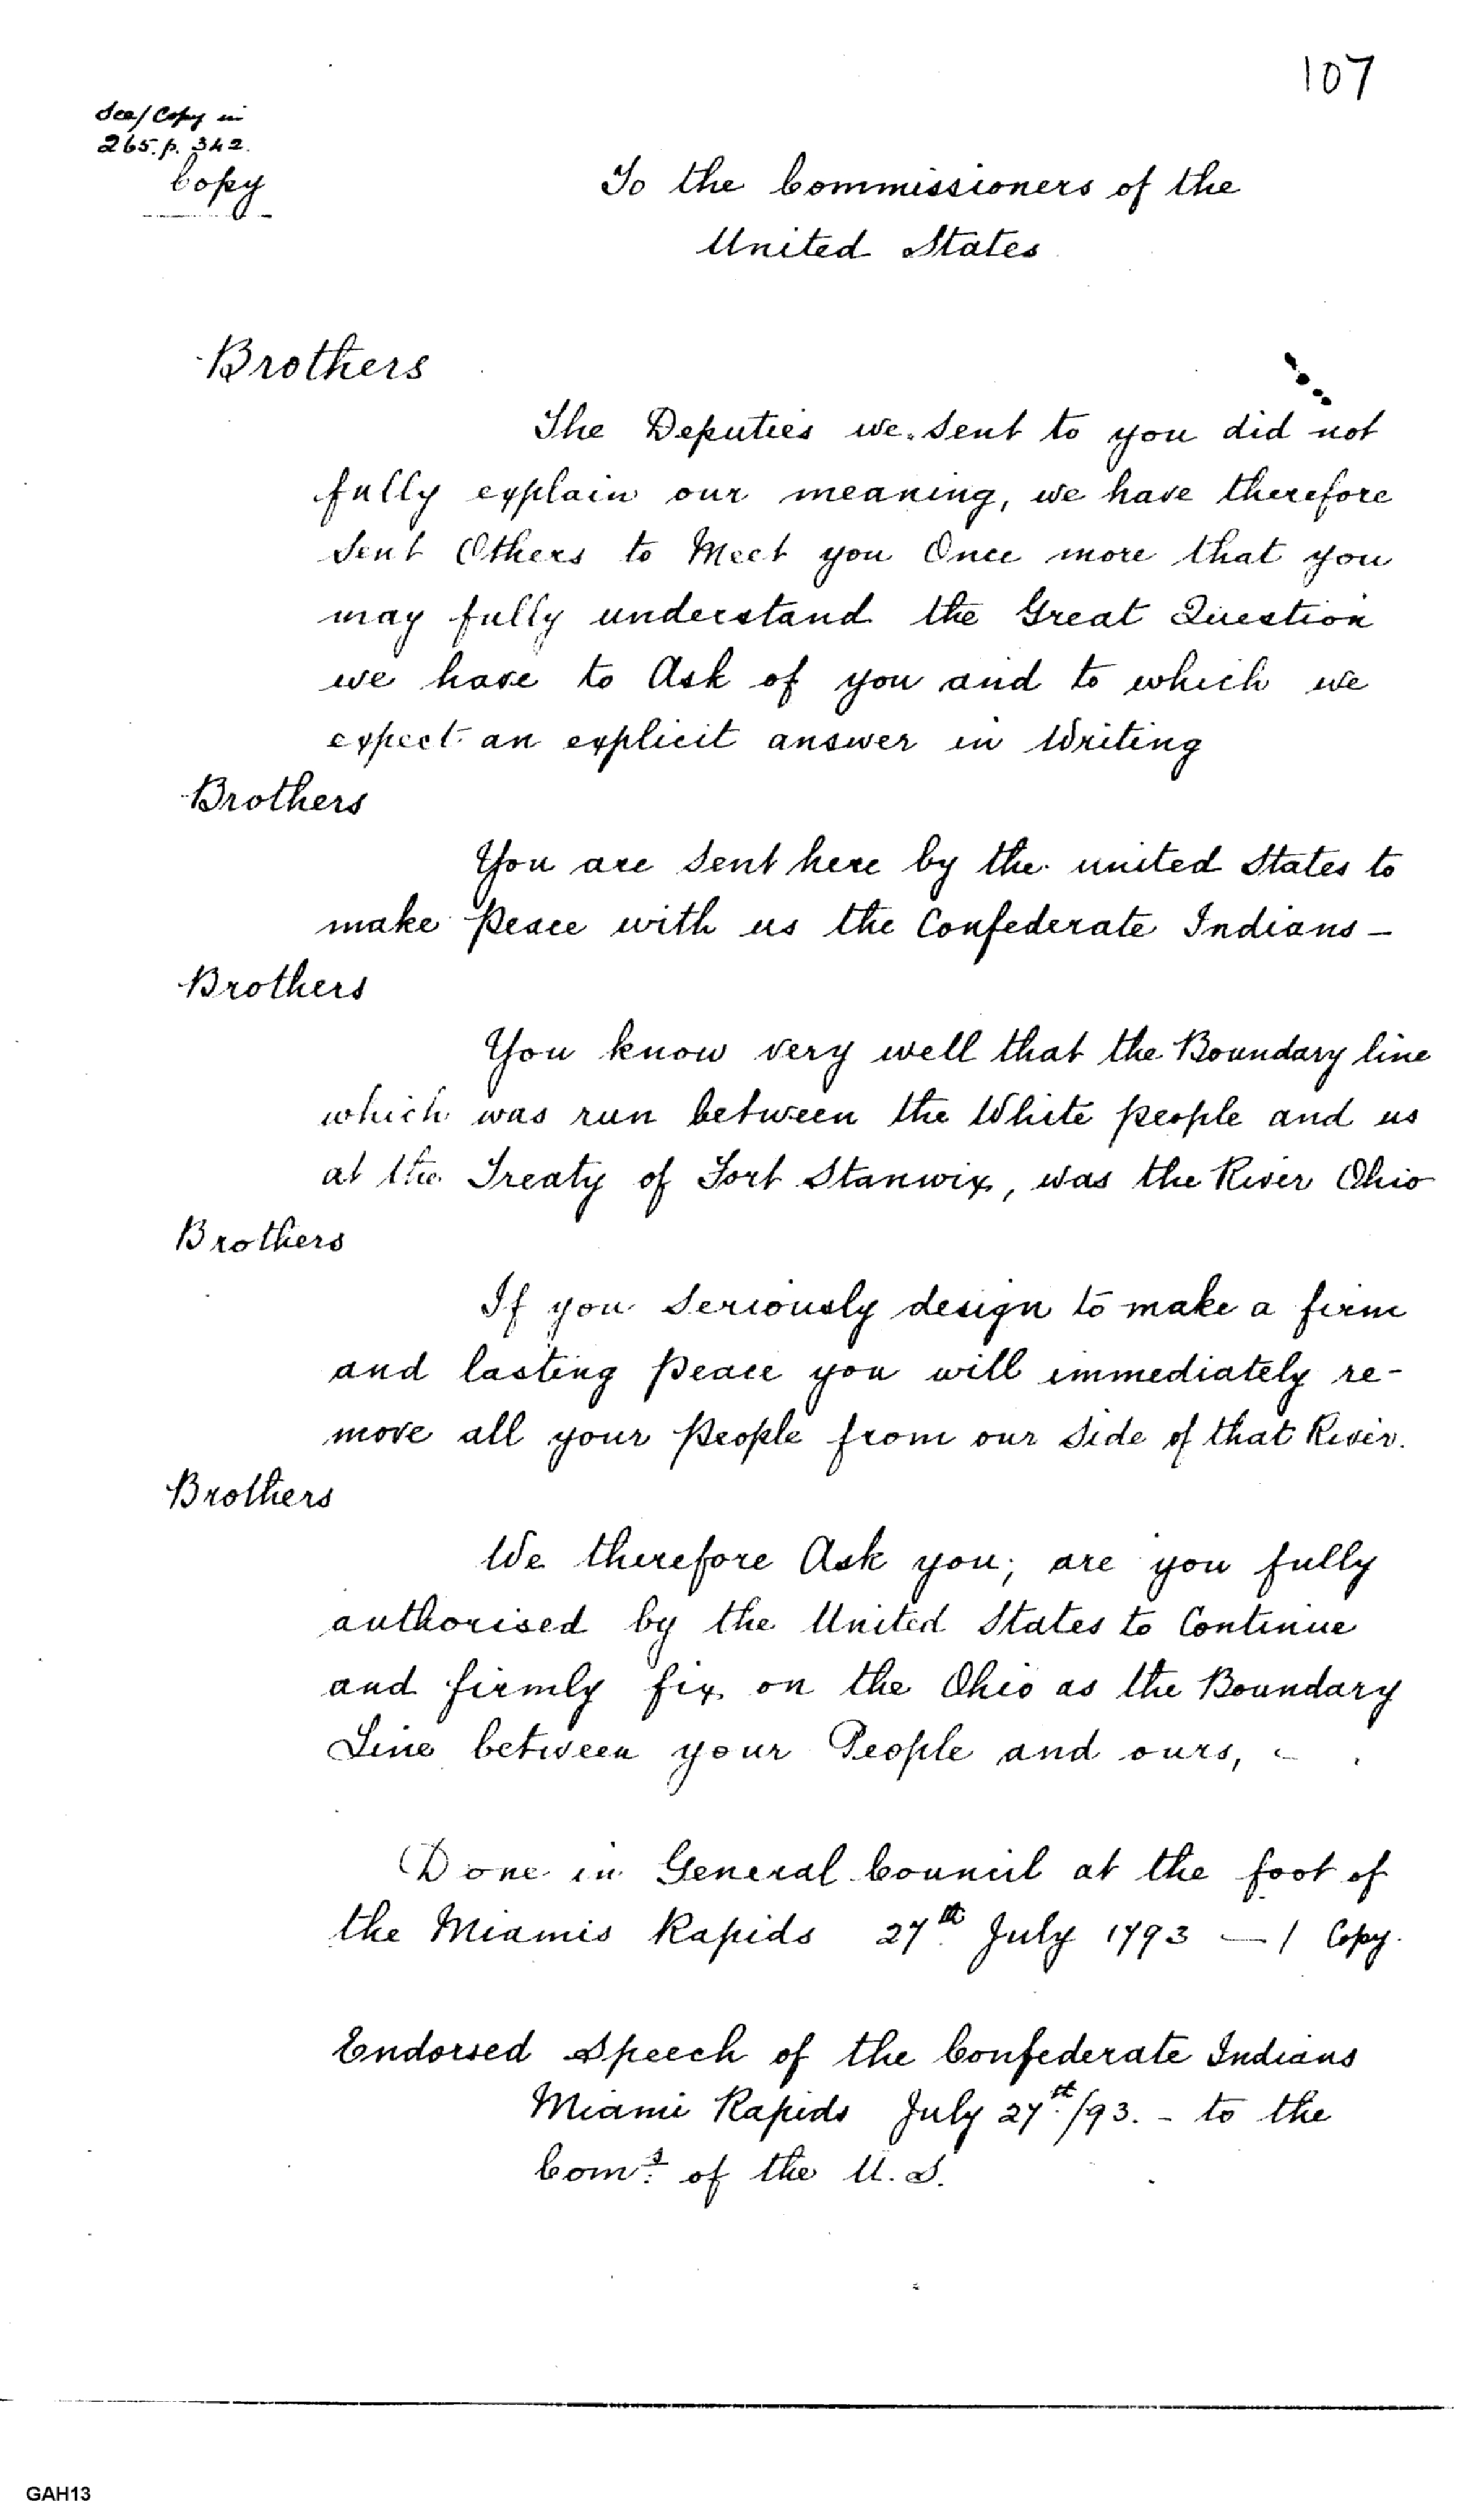 107
See/ Copy in
265. p. 342.
Copy
To the Commissioners of the
United States
Brothers
The Deputies we sent to you did not
fully explain our meaning, we have therefore
sent Others to Meet you Once more that you
may fully understand the Great Question
we have to Ask of you and to which we
expect an explicit answer in Writing
Brothers
You are sent here by the united States to
make peace with us the Confederate Indians —
Brothers
You know very well that the Boundary line
which was run between the White people and us
at the Treaty of Fort Stanwix, was the River Ohio
Brothers
If you seriously design to make a firm
and lasting peace you will immediately re-
move all your people from our side of that River.
Brothers
We therefore Ask you; are you fully
authorised by the United States to Continue
and firmly fix on the Ohio as the Boundary
Line between your People and ours, -
Done in General Council at the foot of
the Miamis Rapids 27th July 1793 — / Copy.
Endorsed Speech of the Confederate Indians
Miami Rapids July 27th/93. - to the
Coms. of the U. S.
GAH13